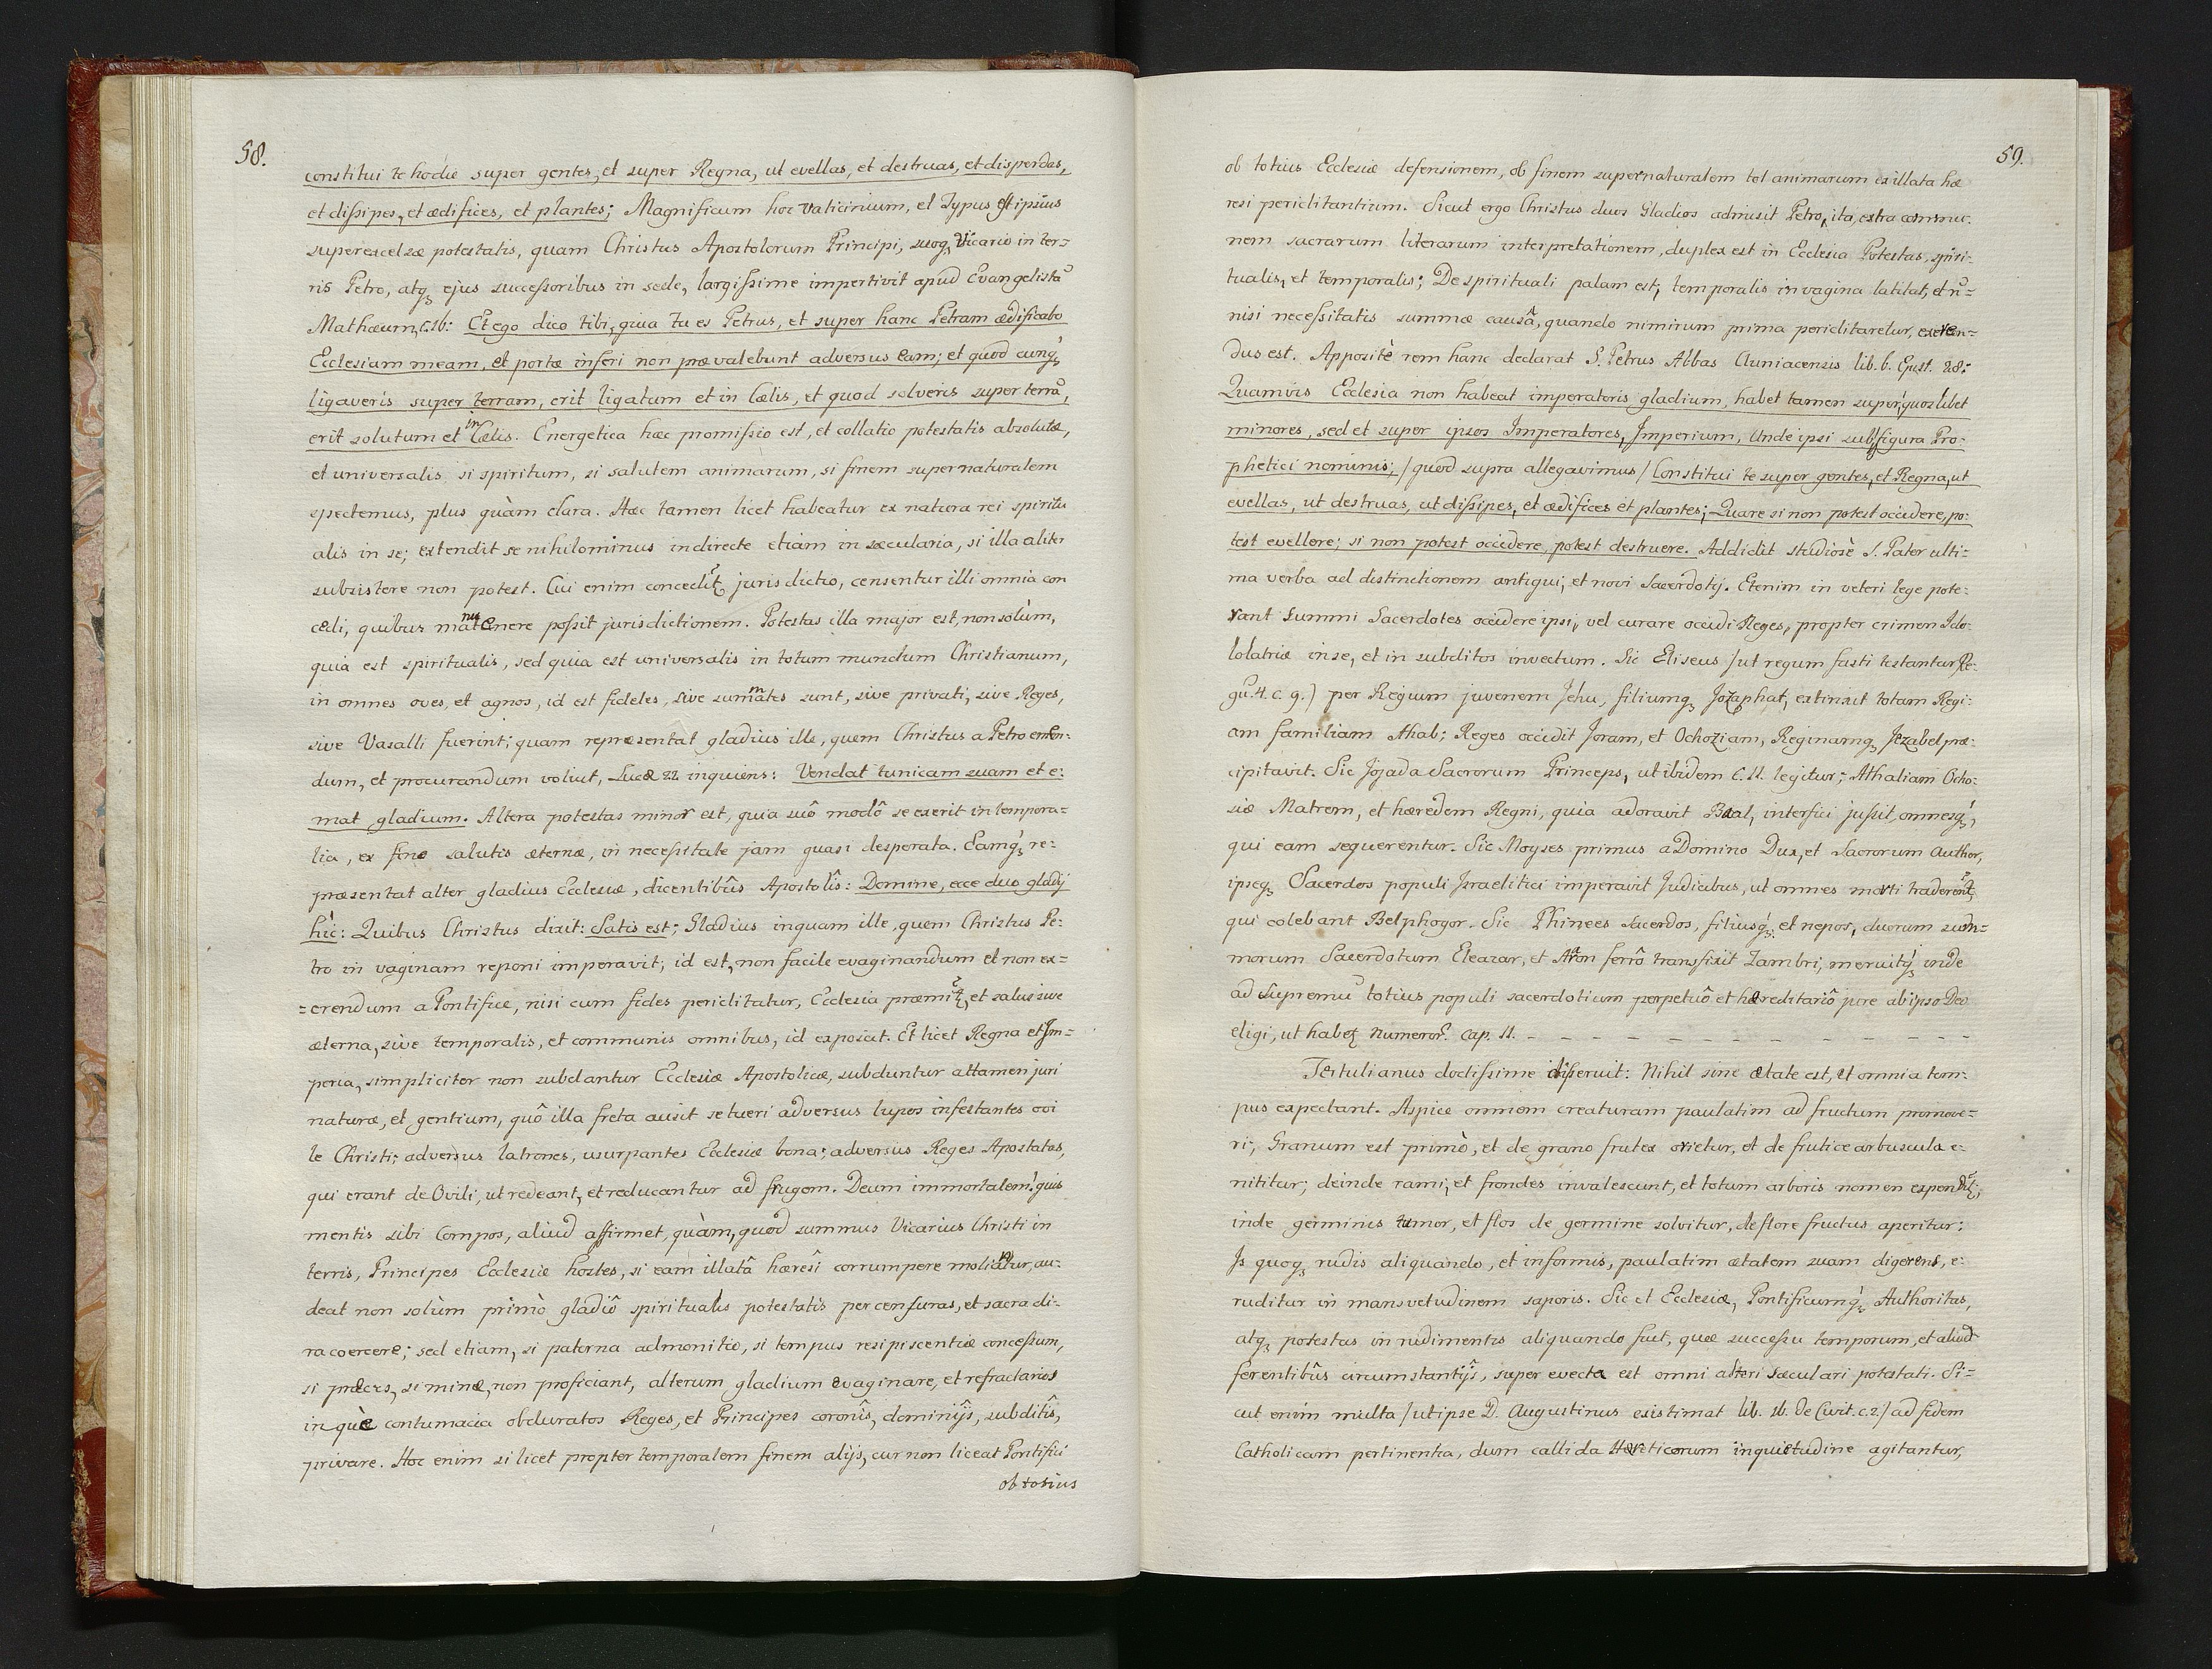 58.
constitui te hodie super gentes, et super Regna, ut evellas, et destruas, et disperdas,
et dissipes, et ædifices, et plantes; Magnificum hoc Vaticinium, et Typus est ipsius
superexcelsæ potestatis, quam Christus Apostolorum Principi, suoq₃ Vicario in ter-
ris Petro, atq₃ ejus successoribus in sede, largissime impertivit apud Evangelistã
Mathæum, c.16: Et ego dico tibi, quia tu es Petrus, et super hanc Petram ædificabo
Ecclesiam meam, et portæ inferi non prævalebunt adversus eam; et quod cunq₃
ligaveris super terram, erit ligatum et in Cælis, et quod solveris super terrã,
erit solutum et in Cælis. Energetica hæc promissio est, et collatio potestatis absolutæ,
et universalis, si spiritum, si salutem animarum, si finem supernaturalem
spectemus, plus quàm clara. Hæc tamen licet habeatur ex natura rei spiritu
alis in se; extendit se nihilominus indirecte etiam in sæcularia, si illa aliter
subsistere non potest. Cui enim conceditr jurisdictio, censentur illi omnia con
cedi, quibus manutenere possit jurisdictionem. Potestas illa major est, non solùm,
quia est spiritualis, sed quia est universalis in totum mundum Christianum,
in omnes oves, et agnos, id est fideles, sive summates sunt, sive privati, sive Reges,
sive Vasalli fuerint; quam repræsentat gladius ille, quem Christus a Petro emen-
dum, et procurandum voluit, Lucæ 22 inquiens: Vendat tunicam suam et e:
mat gladium. Altera potestas minor est, quia suô modô se exerit in tempora-
lia, ex fine salutis æternæ, in necessitate jam quasi desperata. Eamq́₃ re-
præsentat alter gladius Ecclesiæ, dicentibûs Apostolîs: Domine, ecce duo gladij
hîc: Quibus Christus dixit: Satis est; Gladius inquam ille, quem Christus Pe-
tro in vaginam reponi imperavit, id est, non facile evaginandum et non ex=
=erendum a Pontifice, nisi cum fides periclitatur, Ecclesia præmitr, et salus sive
æterna, sive temporalis, et communis omnibus, id exposcit. Et licet Regna et Im=
peria, simpliciter non subdantur Ecclesiæ Apostolicæ, subduntur attamen juri
naturæ, et gentium, quô illa freta ausit se tueri adversus lupos infestantes ovi
le Christi; adversus latrones, usurpantes Ecclesiæ bona; adversus Reges Apostatas,
qui erant de Ovili, ut redeant, et reducantur ad frugem. Deum immortalem! quis
mentis sibi Compos, aliud affirmet, quàm, quod summus Vicarius Christi in
terris, Principes Ecclesiæ hostes, si eam illatâ hæresî corrumpere moliantur, au-
deat non solùm primò gladiô spiritualis potestatis per censuras, et sacra di-
ra coercere; sed etiam, si paterna admonitio, si tempus resipiscentiæ concessum,
si preces, si minæ, non proficiant, alterum gladium evaginare, et refractarios
in què contumacia obduratos Reges, et Principes coronîs, dominijs, subditîs,
privare. Hoc enim si licet propter temporalem finem alijs, cur non liceat Pontifici
ob totius
59.
ob totius Ecclesiæ defensionem, ob finem supernaturalem tot animarum ex illata hæ
resi periclitantium. Sicut ergo Christus duos Gladios admisit Petro, ita, extra commu-
nem sacrarum literarum interpretationem, duplex est in Ecclesia Potestas, spiri-
tualis, et temporalis; De spirituali palam est; temporalis in vagina latitat, et nõ=
nisi necessitatis summæ causâ, quando nimirum prima periclitaretur, exeren-
dus est. Appositè rem hanc declarat S. Petrus Abbas Cluniacensis lib. 6. Epist. 28:
Quamvis Ecclesia non habeat imperatoris gladium, habet tamen super quoslibet
minores, sed et super ipsos Imperatores, Imperium, Unde ipsi sub figura Pro-
phetici nominis; /quod supra allegavimus/ Constitui te super gentes, et Regna, ut
evellas, ut destruas, ut dissipes, et ædifices et plantes; Quare si non potest occidere, po-
test evellere; si non potest occidere, potest destruere. Addidit studiosè S. Pater ulti-
ma verba ad distinctionem antiqui, et novi Sacerdotij. Etenim in veteri lege pote-
rant Summi Sacerdotes occidere ipsi, vel curare occidi Reges, propter crimen Ido-
lolatriæ in se, et in subditos invectum. Sic Eliseus /ut regum fasti testantur Re-
gũ. 4. c. 9.) per Regium juvenem Jehu, filiumq₃ Jozaphat, extinxit totam Regi-
am familiam Ahab; Reges occidit Joram, et Ochoziam, Reginamq₃ Jezabel præ-
cipitavit. Sic Jojada Sacrorum Princeps, ut ibidem C. 11. legitur; Athaliam Ocho-
siæ Matrem, et hæredem Regni, quia adoravit Baal, interfici jussit, omnesq́₃,
qui eam sequerentur. Sic Moyses primus a Domino Dux, et Sacrorum Author,
ipseq₃ Sacerdos populi Israelitici imperavit Judicibus, ut omnes morti traderentr,
qui colebant Belphogor. Sic Phinees Sacerdos, filiusq́₃ et nepos, duorum sum=
morum Sacerdotum Eleazar, et Aron ferrô transfixit Zambri, meruitq́₃ inde
ad Supremũ totius populi sacerdotium perpetuô et hæreditariô jure ab ipso Deo
eligi, ut habetr Numeror. Cap. 11. – – – – – – – – – – – –
Tertulianus doctissime disseruit: Nihil sine ætate est, et omnia tem-
pus expectant. Aspice omnem creaturam paulatim ad fructum promove-
ri; Granum est primò, et de grano frutex orietur, et de frutice arbuscula e-
nititur; deinde rami, et frondes invalescunt, et totum arboris nomen expanditr;
inde germinis tumor, et flos de germine solvitur, de flore fructus aperitur;
Is quoq₃ rudis aliquando, et informis, paulatim ætatem suam digerens, e-
ruditur in mansvetudinem saporis. Sic et Ecclesiæ, Pontificumq́₃ Authoritas,
atq₃ potestas in rudimentis aliquando fuit, quæ successu temporum, et aliud
ferentibûs circumstantijs, super evecta est omni alteri sæculari potestati. Si=
cut enim multa /ut ipse D. Augustinus existimat lib. 16. de Civit. c. 2./ ad fidem
Catholicam pertinentia, dum callida Hæreticorum inquietudine agitantur,